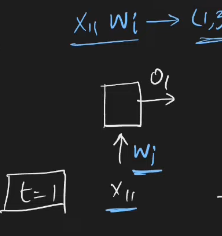 x₁₁ Wi → (1,3
O₁
Wi
t=1 x₁₁